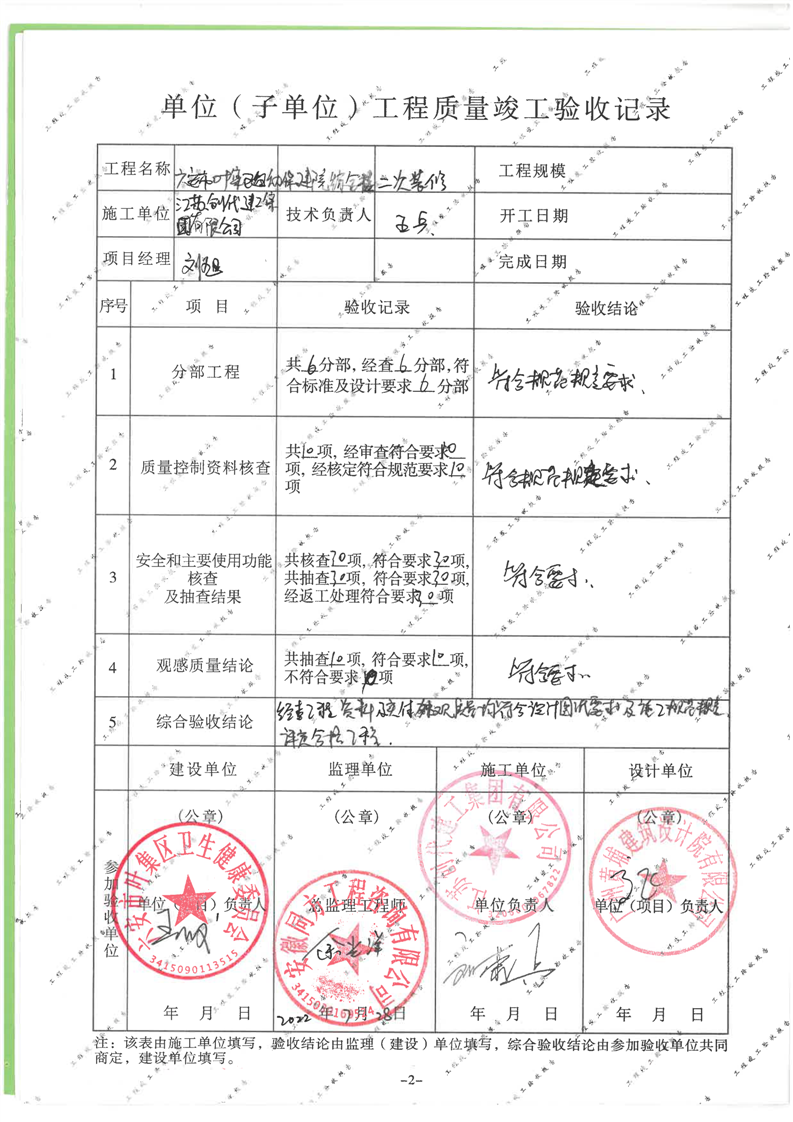 单位（子单位）工程质量竣工验收记录
工程名称 六安市叶集区妇幼保健院综合楼二次装修 工程规模
施工单位 江苏创代建工集团有限公司 技术负责人 王兵 开工日期
项目经理 完成日期
序号 项 目 验收记录 验收结论
1 分部工程 共6分部，经查6分部，符 符合规范规定要求、
合标准及设计要求6分部
2 质量控制资料核查 共10项，经审查符合要求10 符合规范规定要求、
项，经核定符合规范要求10
项
3 安全和主要使用功能 共核查30项，符合要求30项， 符合要求、
核查 共抽查30项，符合要求30项，
及抽查结果 经返工处理符合要求0项
4 观感质量结论 共抽查10项，符合要求10项， 符合要求、
不符合要求 项
5 综合验收结论 经查工程资料及实体外观质量均符合设计图纸要求及施工规范规定，
评定合格工程。
建设单位 监理单位 施工单位 设计单位
参加验收单位
（公章） （公章） （公章） （公章）
六安市叶集区卫生健康委员会
3415090113515
江苏创代建工集团有限公司
建筑设计院有限公司
单位（项目）负责人 总监理工程师 单位负责人 单位（项目）负责人
年 月 日 2022年7月28日 年 月 日 年 月 日
注：该表由施工单位填写，验收结论由监理（建设）单位填写，综合验收结论由参加验收单位共同
商定，建设单位填写。
-2-
工程竣工验收报告